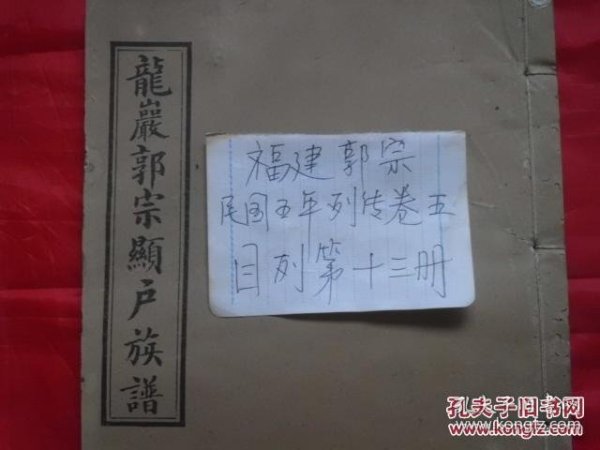 龍巖郭宗顯户族譜
福建郭宗
民国五年列传卷五
目列第十三册
孔夫子旧书网
www.kongfz.com